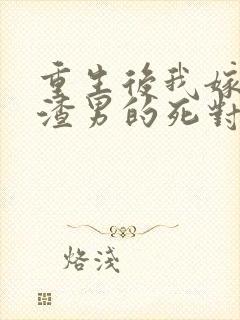 重生後我嫁
渣男的死對
烙淺